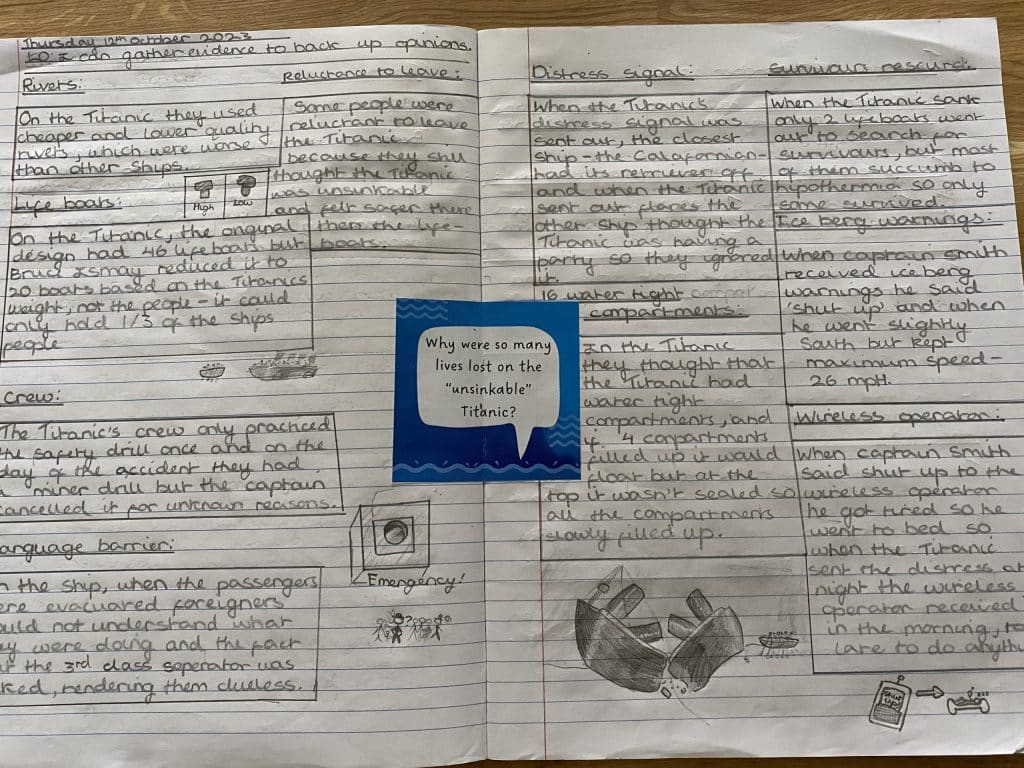 Thursday 12th October 2023
LO: I can gather evidence to back up opinions.
Rivets:
On the Titanic they used
cheaper and lower quality
rivets, which were worse
than other ships.
High
Low
Life boats:
On the Titanic, the original
design had 46 lifeboats but
Bruce Ismay reduced it to
20 boats based on the Titanics
weight, not the people - it could
only hold 1/3 of the ships
people
Reluctance to leave:
Some people were
reluctant to leave
the Titanic
because they still
thought the Titanic
was unsinkable
and felt safer there
then the life-
boats.
crew:
The Titanic's crew only practiced
the safety drill once and on the
day of the accident they had
miner drill but the captain
cancelled it for unknown reasons.
anguage barrier:
n the ship, when the passengers
ere evacuared foreigners
ould not understand what
ey were doing and the fact
the 3rd class seperator was
ked, rendering them clueless.
Emergency!
Why were so many
lives lost on the
"unsinkable"
Titanic?
Distress signal:
When the Titanic's
distress signal was
sent out, the closest
ship - the Calafornian -
had its retriever off
and when the Titanic
sent out flares the
other ship thought the
Titanic was having a
party so they ignored
it.
16 water tight
compartments:
In the Titanic
they thought that
the Titanic had
water tight
compartments, and
if 4 compartments
filled up it would
float but at the
top it wasn't sealed so
all the compartments
slowly filled up.
Survivours rescured:
When the Titanic sank
only 2 lifeboats went
out to search for
survivours, but most
of them succumb to
hipothermia so only
some survived.
Ice berg warnings:
When captain smith
received iceberg
warnings he said
'shut up' and when
he went slightly
South but kept
maximum speed -
26 mpH.
Wireless operator:
When captain Smith
said shut up to the
wireless operator
he got tired so he
went to bed so
when the Titanic
sent the distress at
night the wireless
operator received
in the morning, to
late to do anythi
Shut up!